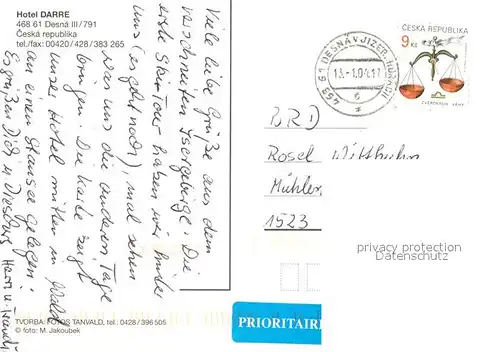 Hotel DARRE
468 61 Desná III / 791
Česká republika
tel./fax: 00420 / 428 / 383 265
Viele liebe Grüße aus dem
verschneiten Isergebirge. Die
erste Skitour haben wir hinter
uns (es geht noch) mal sehen
was uns die anderen Tage
bringen. Die Karte zeigt
unser Hotel mitten im Wald
an einem Stausee gelegen!
Es grüßen Dich u.
TVORBA: FOTOS TANVALD, tel.: 0428 / 396 505
© foto: M. Jakoubek
468 61 DESNÁ V JIZER. HORÁCH
13.-1.04.17
6
*
ČESKÁ REPUBLIKA
9 Kč
ZVĚROKRUH VÁHY
BRD
Rosel
Mühlen
1523
privacy protection
Datenschutz
PRIORITAIRE